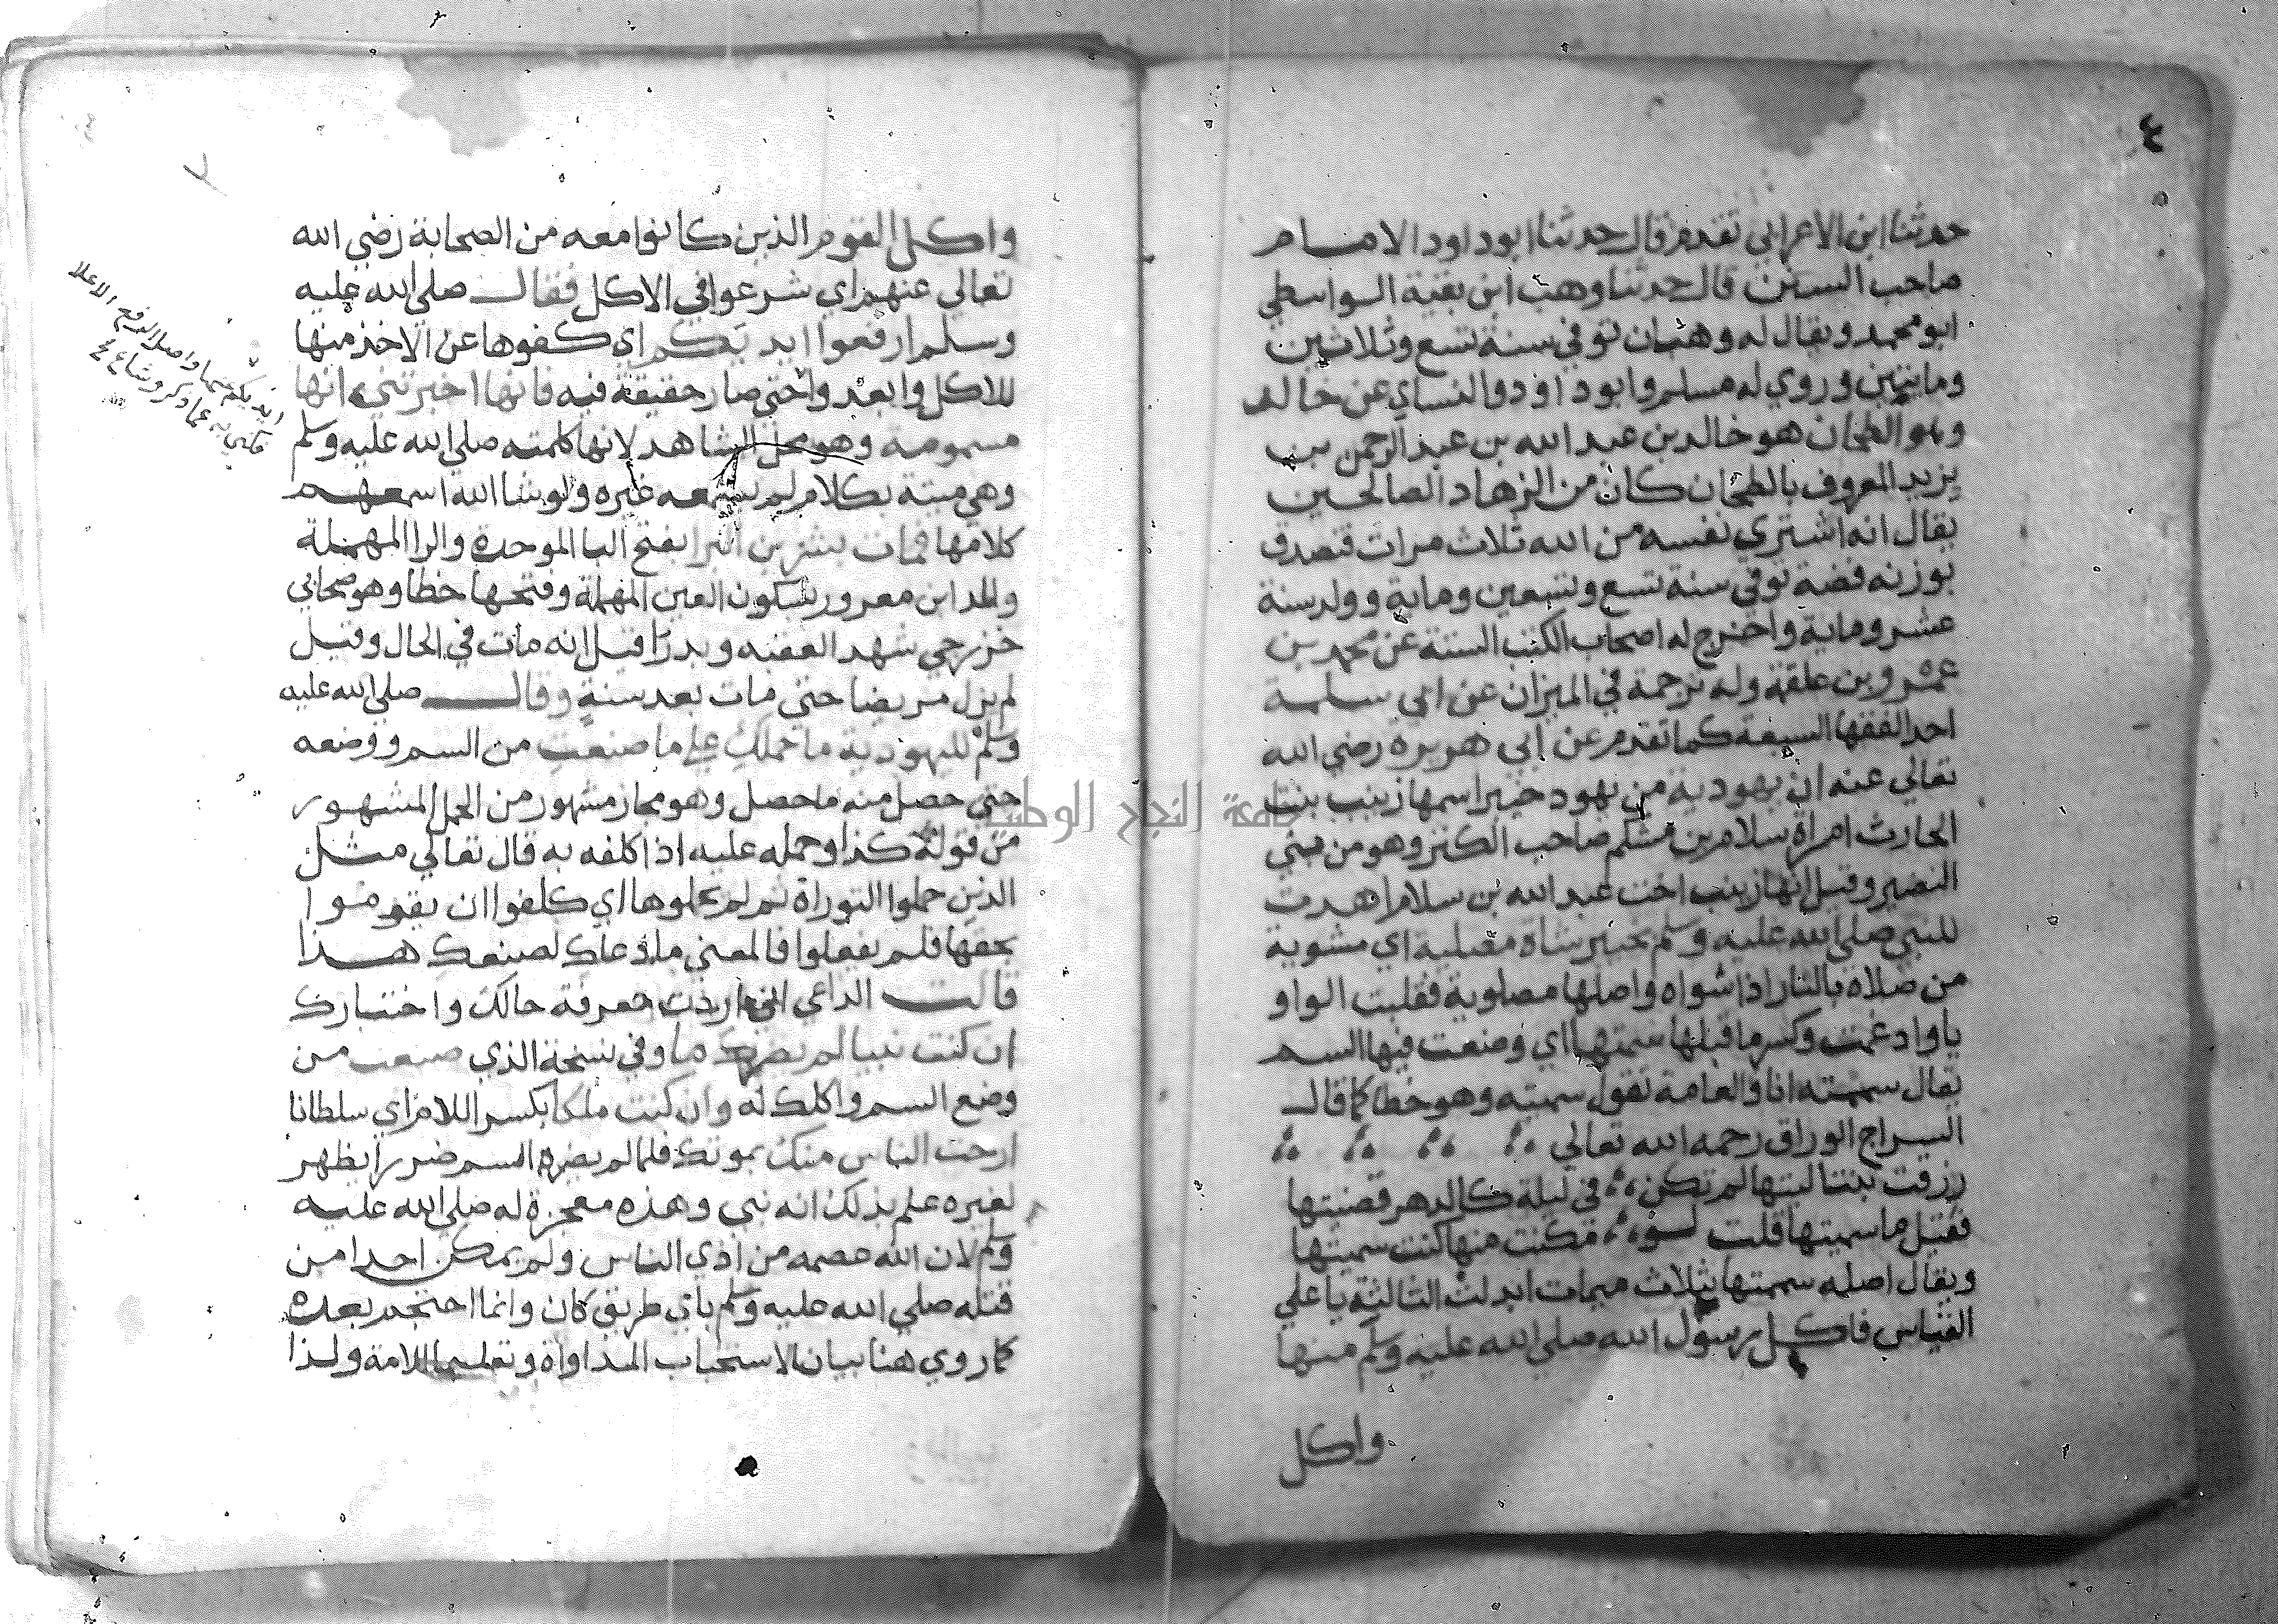 ٤
حدثنا ابن الاعرابي تقدم قال حدثنا ابوداود الامام
صاحب السنن قال حدثنا وهب ابن بقية الواسطي
ابو محمد ويقال له وهبان توفي سنة تسع وثلاثين
ومايتين وروي له مسلم وابو داود والنساي عن خالد
وهو الطحان هو خالد بن عبد الله بن عبد الرحمن بن
يزيد المعروف بالطحان كان من الزهاد الصالحين
يقال انه اشتري نفسه من الله ثلاث مرات فتصدق
بوزنه فضة توفي سنة تسع وتسعين وماية وولد سنة
عشر وماية واخرج له اصحاب الكتب الستة عن محمد بن
عمرو بن علقمة وله ترجمة في الميزان عن ابي سلمة
احد الفقها السبعة كما تقدم عن ابي هريرة رضي الله
تعالي عنه ان يهودية من يهود خيبر اسمها زينب بنت
الحارث امراة سلام بن مشكم صاحب الكنز وهو من بني
النضير وقيل انها زينب اخت عبد الله بن سلام اهدت
للنبي صلي الله عليه وسلم بخيبر شاة مصلية اي مشوية
من صلاه بالنار اذا شواه واصلها مصلوية فقلبت الواو
يا وادغمت وكسر ما قبلها سمتها اي وضعت فيها السم
يقال سممته انا والعامة تقول سميته وهو خطا كما قال
السراج الوراق رحمه الله تعالي
رزقت بنتا ليتها لم تكن في ليلة كالدهر قضيتها
فقيل ما سميتها قلت لو مكنت منها كنت سميتها
ويقال اصله سممتها بثلاث ميمات ابدلت الثالثة يا علي
القياس فاكل رسول الله صلي الله عليه وسلم منها
واكل
٧
واكل القوم الذين كانوا معه من الصحابة رضي الله
تعالي عنهم اي شرعوا في الاكل فقال صلي الله عليه
وسلم ارفعوا ايديكم اي كفوها عن الاخذ منها
للاكل وابعدوا حتي صار حقيقة فيه فانها اخبرتني انها
مسمومة وهو محل الشاهد لانها كلمته صلي الله عليه وسلم
وهي ميتة بكلام لم يسمعه غيره ولو شا الله اسمعهم
كلامها فمات بشر بن البرا بفتح البا الموحدة والرا المهملة
والمد ابن معرور بسكون العين المهملة وفتحها خطا وهو صحابي
خزرجي شهد العقبه وبدرا قيل انه مات في الحال وقيل
لم يزل مريضا حتي مات بعد سنة وقال صلي الله عليه
وسلم لليهودية ما حملك علي ما صنعت من السم ووضعه
حتي حصل منه ما حصل وهو مجاز مشهور من الحمل المشهور
من قوله كذا وحمله عليه اذا كلفه به قال تعالي مثل
الذين حملوا التوراة ثم لم يحملوها اي كلفوا ان يقوموا
بحقها فلم يفعلوا فالمعني ما دعاك لصنعك هذا
قالت الداعي اني اردت معرفة حالك واختبارك
ان كنت نبيا لم يضرك ما وفي نسخة الذي صنعت من
وضع السم واكلك له وان كنت ملكا بكسر اللام اي سلطانا
ارحت الناس منك بموتك فلما لم يضره السم ضررا يظهر
لغيره علم بذلك انه نبي وهذه معجزة له صلي الله عليه
وسلم لان الله عصمه من اذي الناس ولم يمكن احدا من
قتله صلي الله عليه وسلم باي طريق كان وانما احتجم بعده
كما روي هنا بيان الاستحباب المداواة وتعليما للامة ولذا